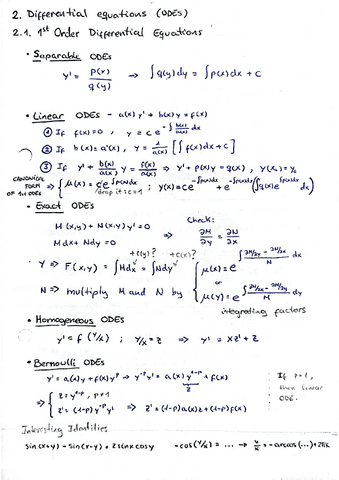 2. Differential equations (ODEs)
2.1. 1st Order Differential Equations
• Saparable ODEs
y' = p(x)/q(y) → ∫q(y)dy = ∫p(x)dx + C
• Linear ODEs - a(x)y' + b(x)y = f(x)
① If f(x)=0, y = c e^{-∫ b(x)/a(x) dx}
② If b(x) = a'(x), y = 1/a(x) [∫f(x)dx + c]
③ If y' + b(x)/a(x) y = f(x)/a(x) ⇒ y' + p(x)y = q(x), y(x₀) = y₀
CANONICAL FORM OF 1st ODEs
⇒ { μ(x) = c e^{∫p(x)dx} drop it : c=1 ; y(x) = c e^{-∫p(x)dx} + e^{-∫p(x)dx} (∫q(x)e^{∫p(x)dx} dx)
• Exact ODEs
M(x,y) + N(x,y)y' = 0
Mdx + Ndy = 0
⇒ Check: ∂M/∂y = ∂N/∂x
+c(y)? +c(x)?
Y ⇒ F(x,y) = ∫Mdx = ∫Ndy
N ⇒ multiply M and N by { μ(x) = e^{∫ (∂M/∂y - ∂N/∂x)/N dx}
or
μ(y) = e^{∫ (∂N/∂x - ∂M/∂y)/M dy}
integrating factors
• Homogeneous ODEs
y' = f(y/x) ; y/x = z ⇒ y' = xz' + z
• Bernoulli ODEs
y' = a(x)y + f(x)y^p → y^{-p}y' = a(x) y^{1-p} + f(x)
z
⇒ { z = y^{1-p}, p≠1
z' = (1-p)y^{-p}y' ⇒ z' = (1-p)a(x)z + (1-p)f(x)
If p=1,
then linear
ODE.
Interesting Identities
sin(x+y) - sin(x-y) = 2sinxcosy
-cos(y/x) = ... → y/x = -arcos(...) + 2πk